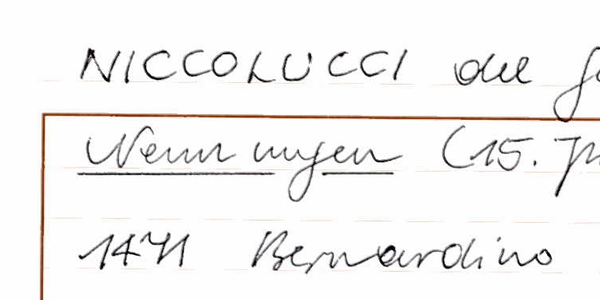 NICCOLUCCI del
Nennungen (15.
1471 Bernardino